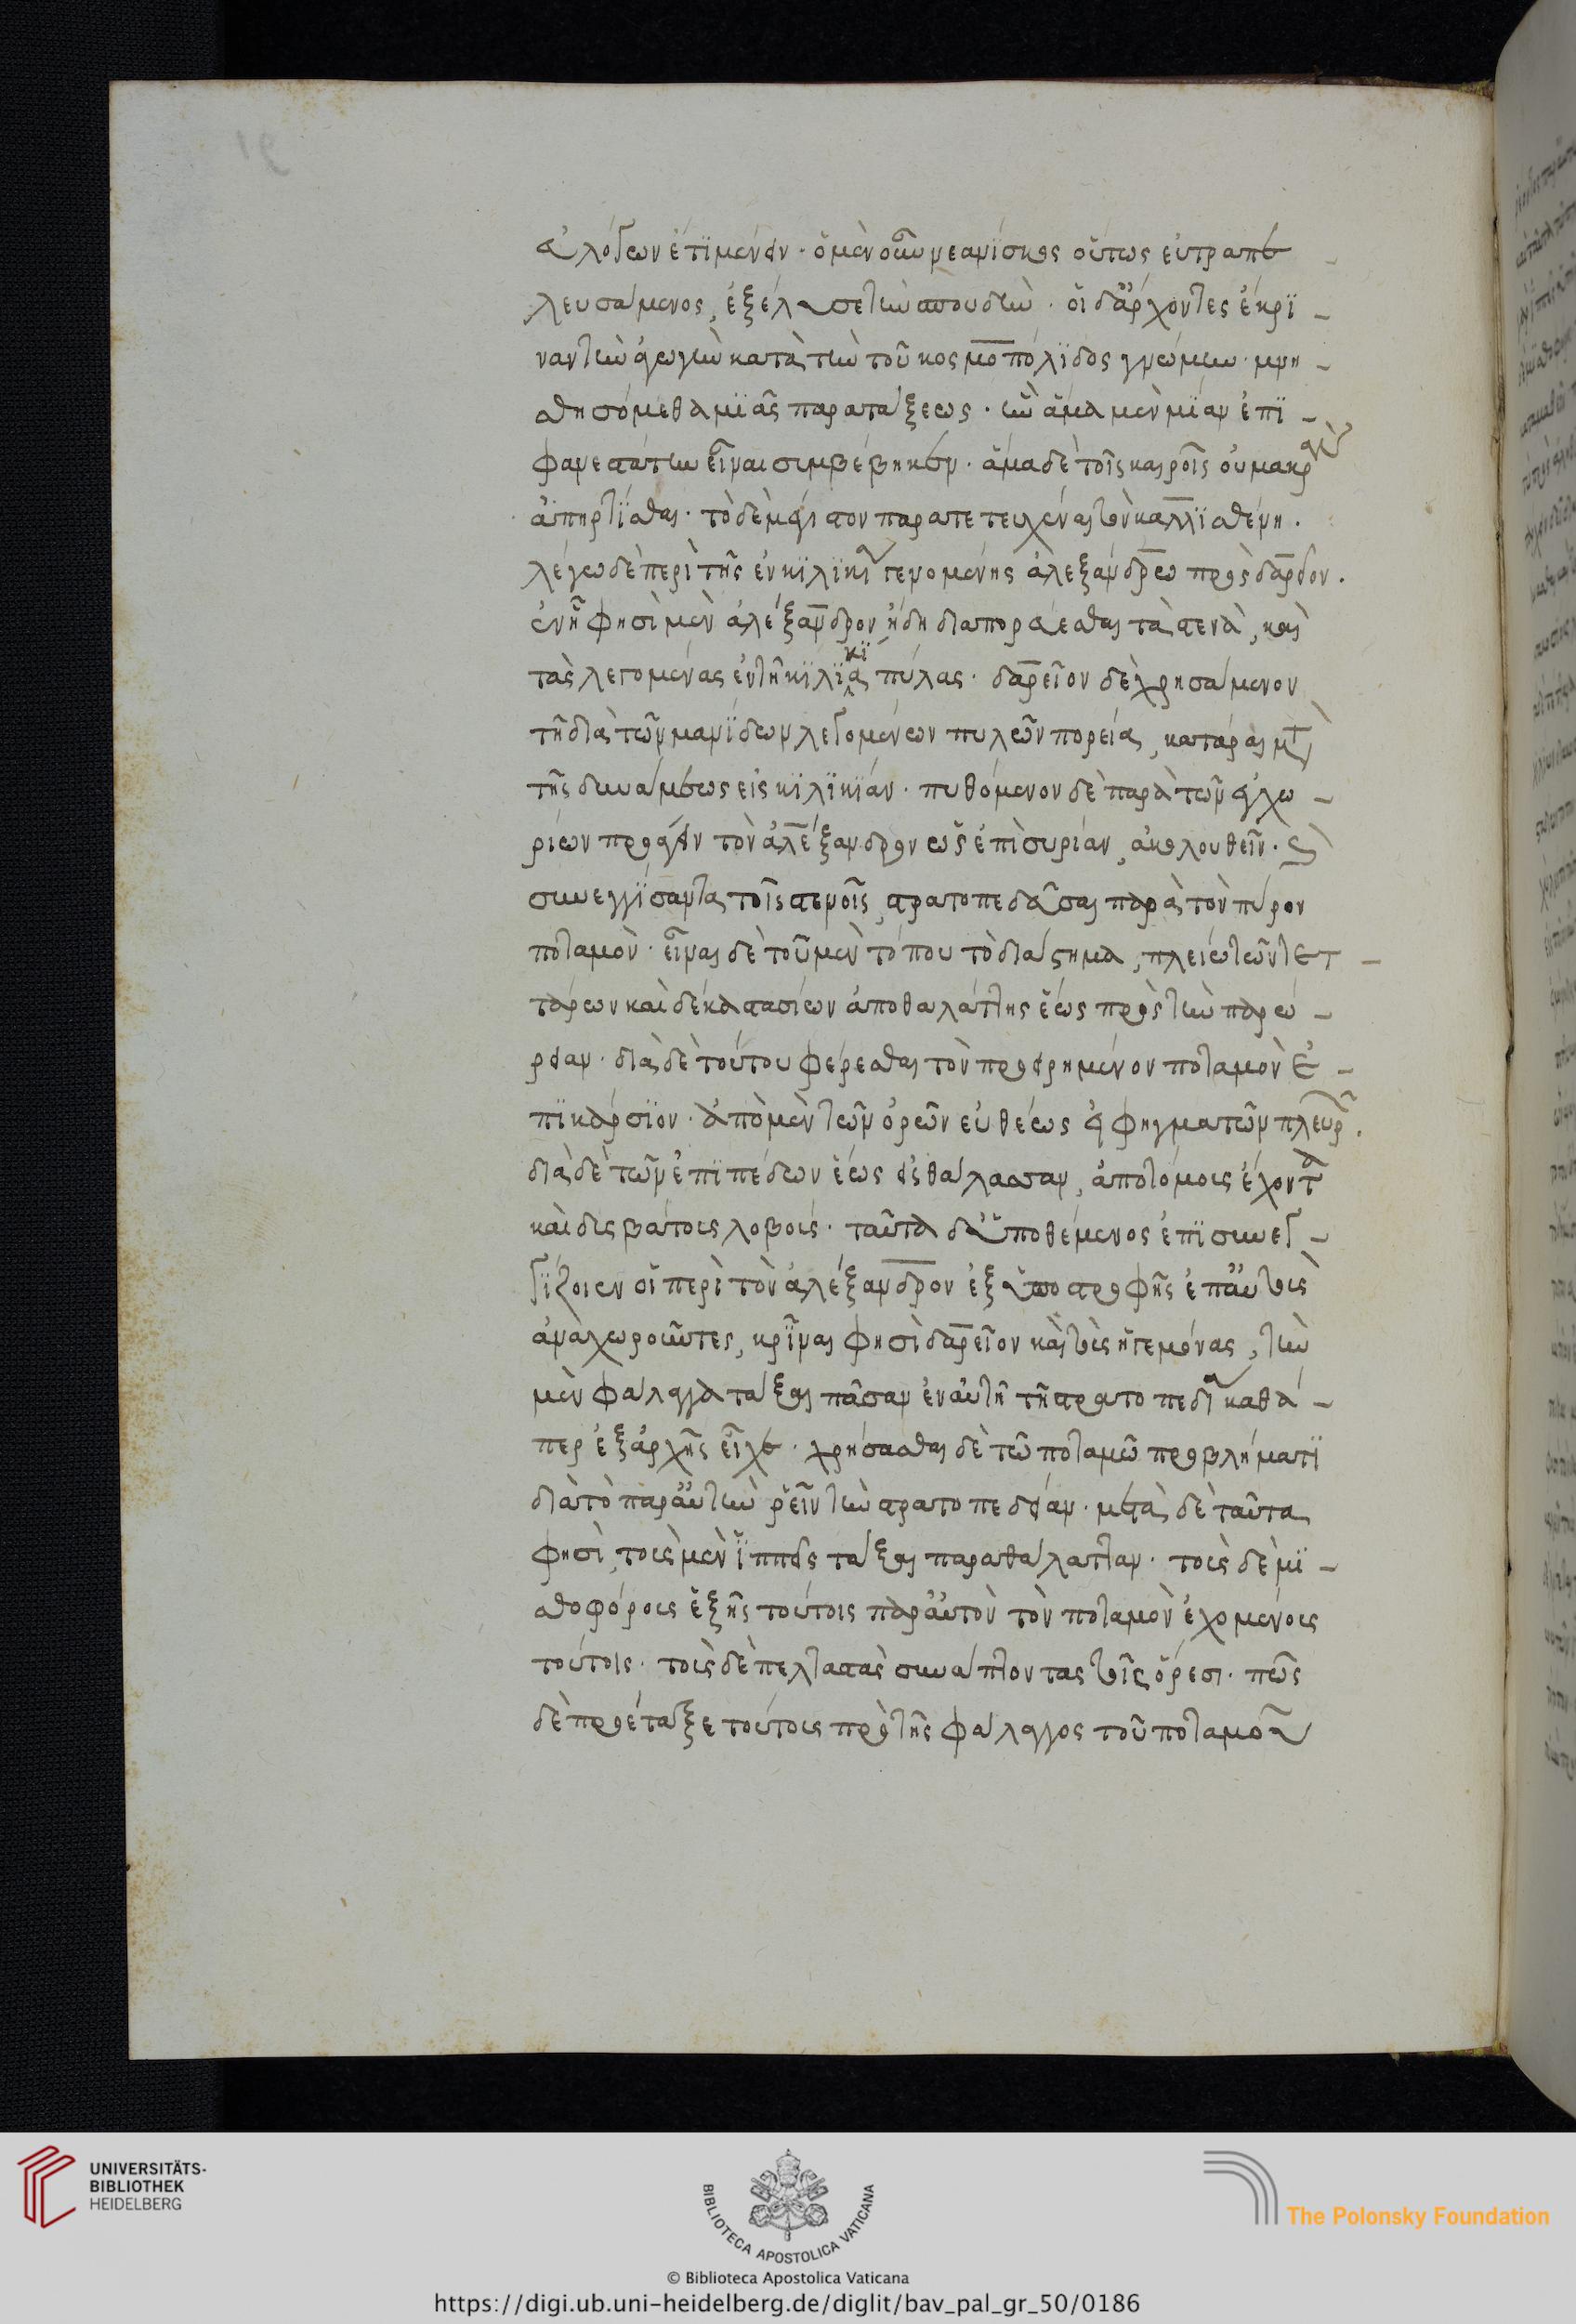 εὐλόγων ἔτϊ μένειν · ὁ μὲν οὖν νεανίσκος οὕτως εὐτραπε -
λευσάμενος, ἐξέλυσε τὴν σπουδὴν · οἱ δ' ἄρχοντες ἔκρϊ -
ναν τὴν ἀγωγὴν κατὰ τὴν τοῦ κοσμοπόλϊδος γνώμην · μνη -
σθησόμεθα μϊᾶς παρατάξεως · ἣν ἅμα μὲν μΐαν ἐπϊ -
φανεστάτην εἶναι συμβέβηκεν · ἅμα δὲ τοῖς καιροῖς οὐ μακρὰν
ἀπηρτΐσθαι · τὸ δὲ μέγιστον παρατετευχέναι τὸν καλλϊσθένη ·
λέγω δὲ περὶ τῆς ἐν κϊλϊκίᾳ γενομένης ἀλεξάνδρῳ πρὸς δαρεῖον ·
ἐν ᾗ φησὶ μὲν ἀλέξανδρον ἤδη διαπορεύεσθαι τὰ στενὰ, καὶ
τὰς λεγομένας ἐν τῇ κϊλϊκϊᾳ πύλας · δαρεῖον δὲ χρησάμενον
τῇ διὰ τῶν μανΐδων λεγομένων πυλῶν πορείᾳ, κατᾶραι μετὰ
τῆς δυνάμεως εἰς κϊλϊκϊάν · πυθόμενον δὲ παρὰ τῶν ἐγχω -
ρίων προάγειν τὸν ἀλέξανδρον ὡς ἐπὶ συρίαν, ἀκολουθεῖν · καὶ
συνεγγΐσαντα τοῖς στενοῖς, στρατοπεδεῦσαι παρὰ τὸν πύρον
ποταμὸν · εἶναι δὲ τοῦ μὲν τόπου τὸ διάστημα, πλείω τῶν τετ -
τάρων καὶ δέκα στασίων ἀπο θαλάττης ἕως πρὸς τὴν παρώ -
ρειαν · διὰ δὲ τούτου φέρεσθαι τὸν προειρημένον ποταμὸν ἐ -
πϊκάρσϊον · ἀπὸ μὲν τῶν ὀρῶν εὐθέως ἐφηγματῶν πλευρῶν ·
διὰ δὲ τῶν ἐπϊπέδων ἕως εἰς θάλασσαν, ἀποτόμους ἔχοντα
καὶ δυσβάτους λοβούς · ταῦτα δ' ὑποθέμενος ἐπϊ συνεγ -
γΐζοιεν οἱ περὶ τὸν ἀλέξανδρον ἐξ ὑποστροφῆς ἐπ' αὐτοὺς
ἀναχωροῦντες, κρῖναι φησὶ δαρεῖον καὶ τοὺς ἡγεμόνας, τὴν
μὲν φάλαγγα τάξαι πᾶσαν ἐν αὐτῇ τῇ στρατοπεδείᾳ καθά -
περ ἐξ ἀρχῆς εἶχε · χρήσασθαι δὲ τῷ ποταμῷ προβλήματϊ
διὰ τὸ παρ' αὐτὴν ῥεῖν τὴν στρατοπεδείαν · μετὰ δὲ ταῦτα
φησὶ, τοὺς μὲν ἵππεῖς τάξαι παρα θάλατταν · τοὺς δὲ μϊ -
σθοφόρους ἑξῆς τούτοις παρ' αὐτὸν τὸν ποταμὸν ἐχομένους
τούτοις · τοὺς δὲ πελταστὰς συνάπτοντας τοῖς ὄρεσι · πῶς
δὲ προέταξε τούτους πρὸ τῆς φάλαγγος τοῦ ποταμοῦ
UNIVERSITÄTS-
BIBLIOTHEK
HEIDELBERG
BIBLIOTECA APOSTOLICA VATICANA
The Polonsky Foundation
© Biblioteca Apostolica Vaticana
https://digi.ub.uni-heidelberg.de/diglit/bav_pal_gr_50/0186